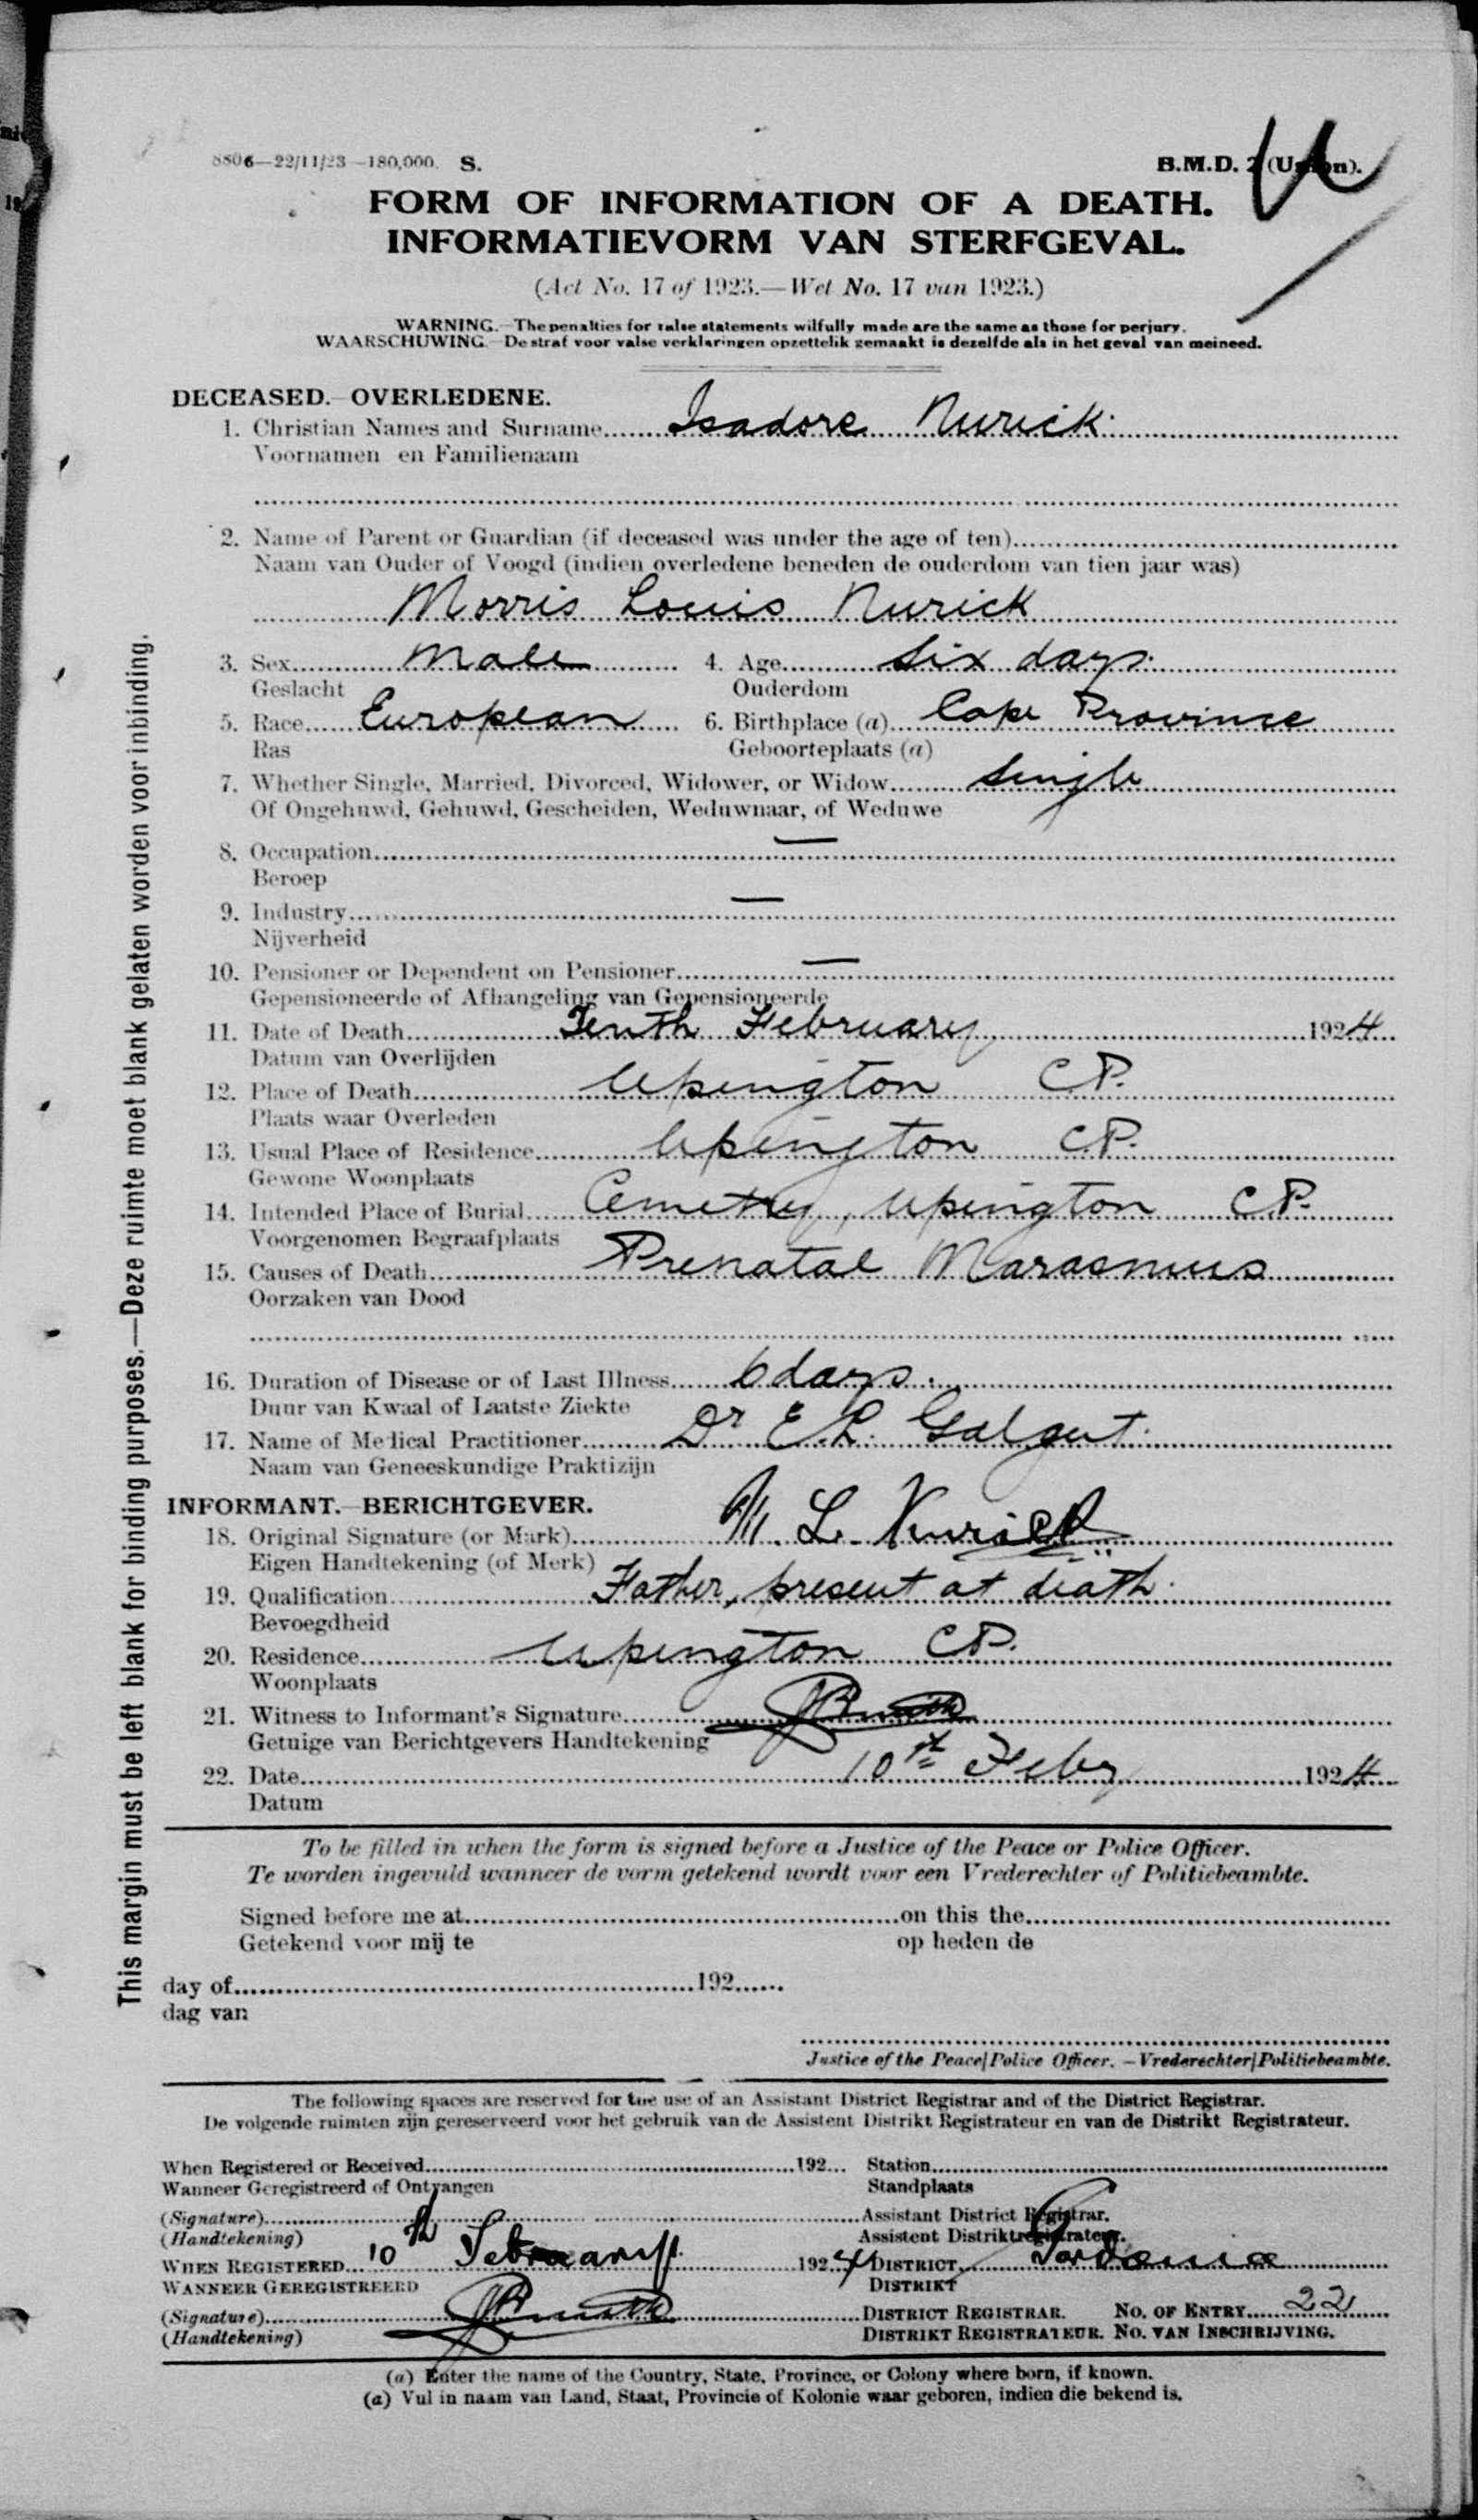 8806—22/11/23—180,000. S.
B.M.D. 2 (Union).
FORM OF INFORMATION OF A DEATH.
INFORMATIEVORM VAN STERFGEVAL.
(Act No. 17 of 1923.—Wet No. 17 van 1923.)
WARNING.—The penalties for false statements wilfully made are the same as those for perjury.
WAARSCHUWING.—De straf voor valse verklaringen opzettelik gemaakt is dezelfde als in het geval van meineed.
DECEASED.—OVERLEDENE.
1. Christian Names and Surname Isadore Nurick
Voornamen en Familienaam
2. Name of Parent or Guardian (if deceased was under the age of ten)
Naam van Ouder of Voogd (indien overledene beneden de ouderdom van tien jaar was)
Morris Louis Nurick
3. Sex Male 4. Age Six days
Geslacht Ouderdom
5. Race European 6. Birthplace (a) Cape Province
Ras Geboorteplaats (a)
7. Whether Single, Married, Divorced, Widower, or Widow Single
Of Ongehuwd, Gehuwd, Gescheiden, Weduwnaar, of Weduwe
8. Occupation —
Beroep
9. Industry —
Nijverheid
10. Pensioner or Dependent on Pensioner —
Gepensioneerde of Afhangeling van Gepensioneerde
11. Date of Death Tenth February 1924
Datum van Overlijden
12. Place of Death Upington C.P.
Plaats waar Overleden
13. Usual Place of Residence Upington C.P.
Gewone Woonplaats
14. Intended Place of Burial Cemetry, Upington C.P.
Voorgenomen Begraafplaats
15. Causes of Death Prenatal Marasmus
Oorzaken van Dood
16. Duration of Disease or of Last Illness 6 days.
Duur van Kwaal of Laatste Ziekte
17. Name of Medical Practitioner Dr E.L. Galgut
Naam van Geneeskundige Praktizijn
INFORMANT.—BERICHTGEVER.
18. Original Signature (or Mark) M. L. Nurick
Eigen Handtekening (of Merk)
19. Qualification Father, present at death.
Bevoegdheid
20. Residence Upington C.P.
Woonplaats
21. Witness to Informant's Signature
Getuige van Berichtgevers Handtekening
22. Date 10th Feby 1924
Datum
To be filled in when the form is signed before a Justice of the Peace or Police Officer.
Te worden ingevuld wanneer de vorm getekend wordt voor een Vrederechter of Politiebeambte.
Signed before me at on this the
Getekend voor mij te op heden de
day of 192
dag van
Justice of the Peace/Police Officer.—Vrederechter/Politiebeambte.
The following spaces are reserved for the use of an Assistant District Registrar and of the District Registrar.
De volgende ruimten zijn gereserveerd voor het gebruik van de Assistent Distrikt Registrateur en van de Distrikt Registrateur.
When Registered or Received 192 Station
Wanneer Geregistreerd of Ontvangen Standplaats
(Signature) Assistant District Registrar.
(Handtekening) Assistent Distriktregistrateur.
WHEN REGISTERED 10th February 1924 DISTRICT Gordonia
WANNEER GEREGISTREERD DISTRIKT
(Signature) DISTRICT REGISTRAR. NO. OF ENTRY 22
(Handtekening) DISTRIKT REGISTRATEUR. NO. VAN INSCHRIJVING.
(a) Enter the name of the Country, State, Province, or Colony where born, if known.
(a) Vul in naam van Land, Staat, Provincie of Kolonie waar geboren, indien die bekend is.
This margin must be left blank for binding purposes.—Deze ruimte moet blank gelaten worden voor inbinding.